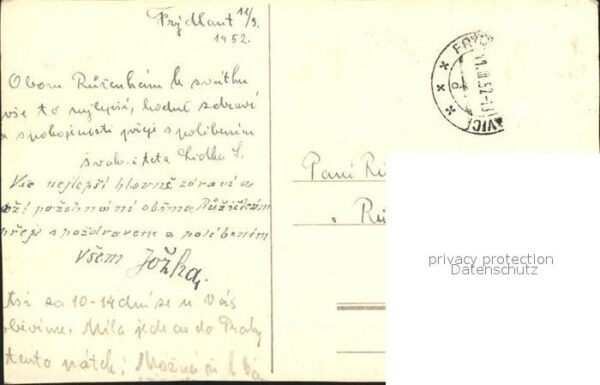 Frýdlant 11/3.
1952.
Oboum Růženkám k svátku
vše to nejlepší, hodně zdraví
a spokojenosti přeje s políbením
švak. i teta Lidka S.
Vše nejlepší hlavně zdraví a
boží požehnání oběma Růžičkám
přeje s pozdravem a políbením
všem Jožka,
Asi za 10-14 dní se u Vás
objevíme. Míla jede as do Prahy
tento pátek, Možná i k
FRÝD
11.III.52
VICÍ
Paní Rů
Rů
privacy protection
Datenschutz